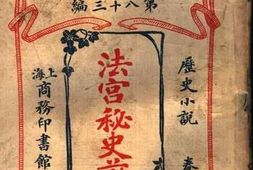 第八十三編
歷史小說
法宮秘史前
上海
商務印書館